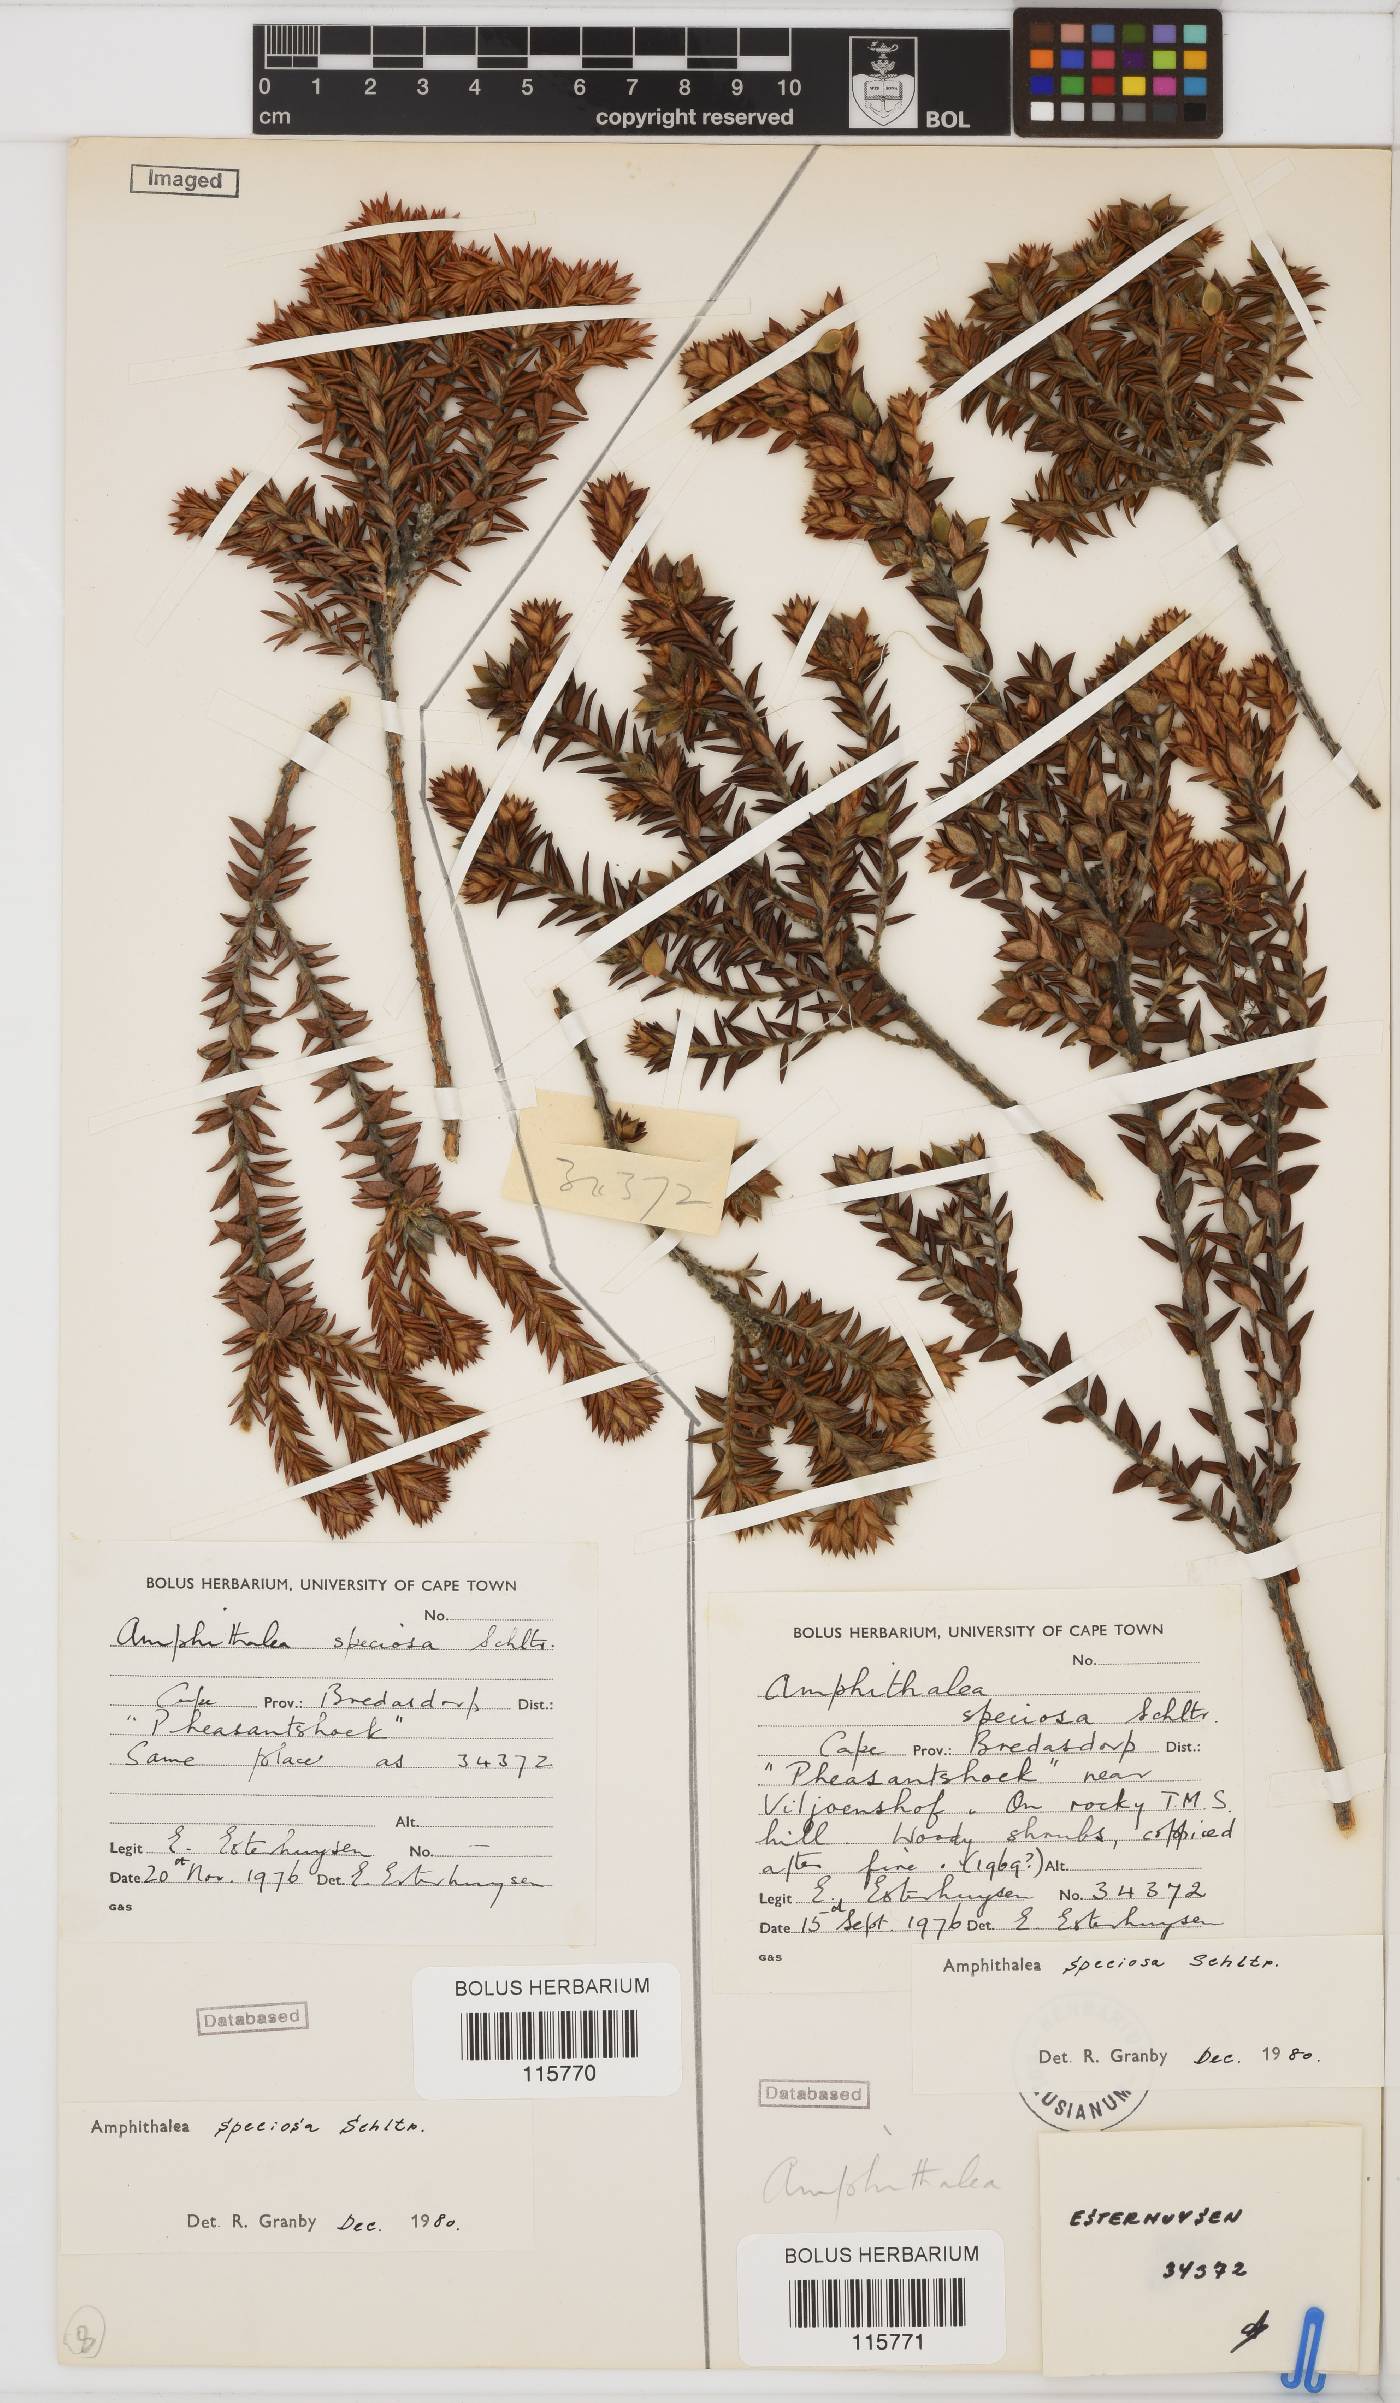 0 1 2 3 4 5 6 7 8 9 10
cm copyright reserved
BOL
Imaged
34372
BOLUS HERBARIUM, UNIVERSITY OF CAPE TOWN
No.
Amphithalea speciosa Schltr.
Cape Prov.: Bredasdorp Dist.:
"Pheasantshoek"
Same place as 34372
Alt.
Legit E. Esterhuysen No. —
Date 20 Nov. 1976 Det. E. Esterhuysen
G&S
Databased
BOLUS HERBARIUM
115770
Amphithalea speciosa Schltr.
Det. R. Granby Dec. 1980.
8
BOLUS HERBARIUM, UNIVERSITY OF CAPE TOWN
No.
Amphithalea
speciosa Schltr.
Cape Prov.: Bredasdorp Dist.:
"Pheasantshoek" near
Viljoenshof. On rocky T.M.S.
hill. Woody shrubs, coppiced
after fire. (1969?) Alt.
Legit E. Esterhuysen No. 34372
Date 15 Sept. 1976 Det. E. Esterhuysen
G&S
Amphithalea speciosa Schltr.
Det. R. Granby Dec. 1980.
USIANUM
Databased
Amphithalea
BOLUS HERBARIUM
115771
ESTERHUYSEN
34372